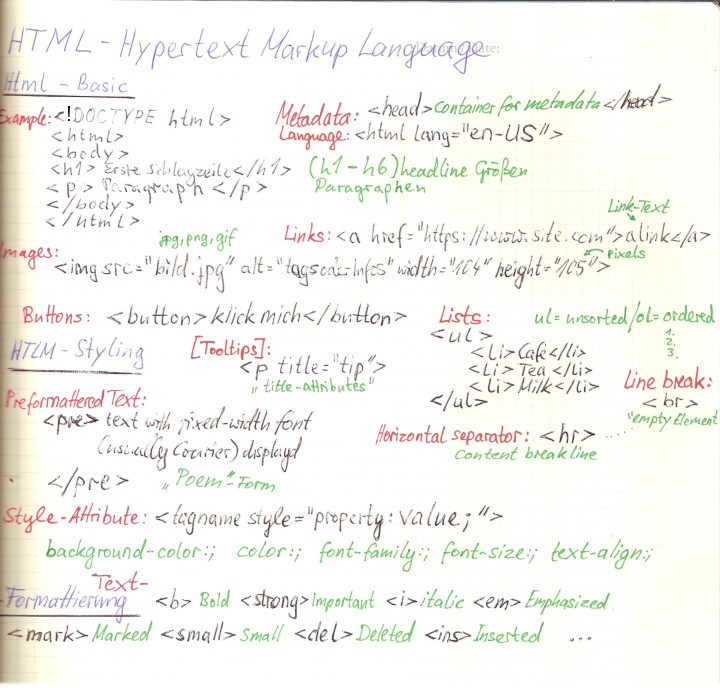 HTML - Hypertext Markup Language
Html - Basic
Example: <!DOCTYPE html>
<html>
<body>
<h1> Erste Schlagzeile </h1> (h1 - h6) headline Größen
<p> Paragraph </p> Paragraphen
</body>
</html>
Metadata: <head> Container for metadata </head>
Language: <html lang="en-US">
Link-Text
Links: <a href="https://www.site.com">a link</a>
jpg, png, gif
Images:
Pixels
<img src="bild.jpg" alt="tagsoderInfos" width="104" height="105">
Buttons: <button> klick mich </button>
Lists: ul = unsorted / ol = ordered
1.
2.
3.
<ul>
<Li> Café </li>
<Li> Tea </li>
<Li> Milk </li>
</ul>
HTLM - Styling
[Tooltips]:
<p title="tip">
„title-attributes"
Line break:
<br>
"empty Element
Preformatted Text:
<pre> text with fixed-width font
(usually Courier) displayd
</pre> „Poem"-Form
Horizontal separator: <hr> ....
Content break line
Style-Attribute: <tagname style="property: value;">
background-color:; color:; font-family:; font-size:; text-align:;
Text-
Formattierung <b> Bold <strong> Important <i> italic <em> Emphasized
<mark> Marked <small> Small <del> Deleted <ins> Inserted ...